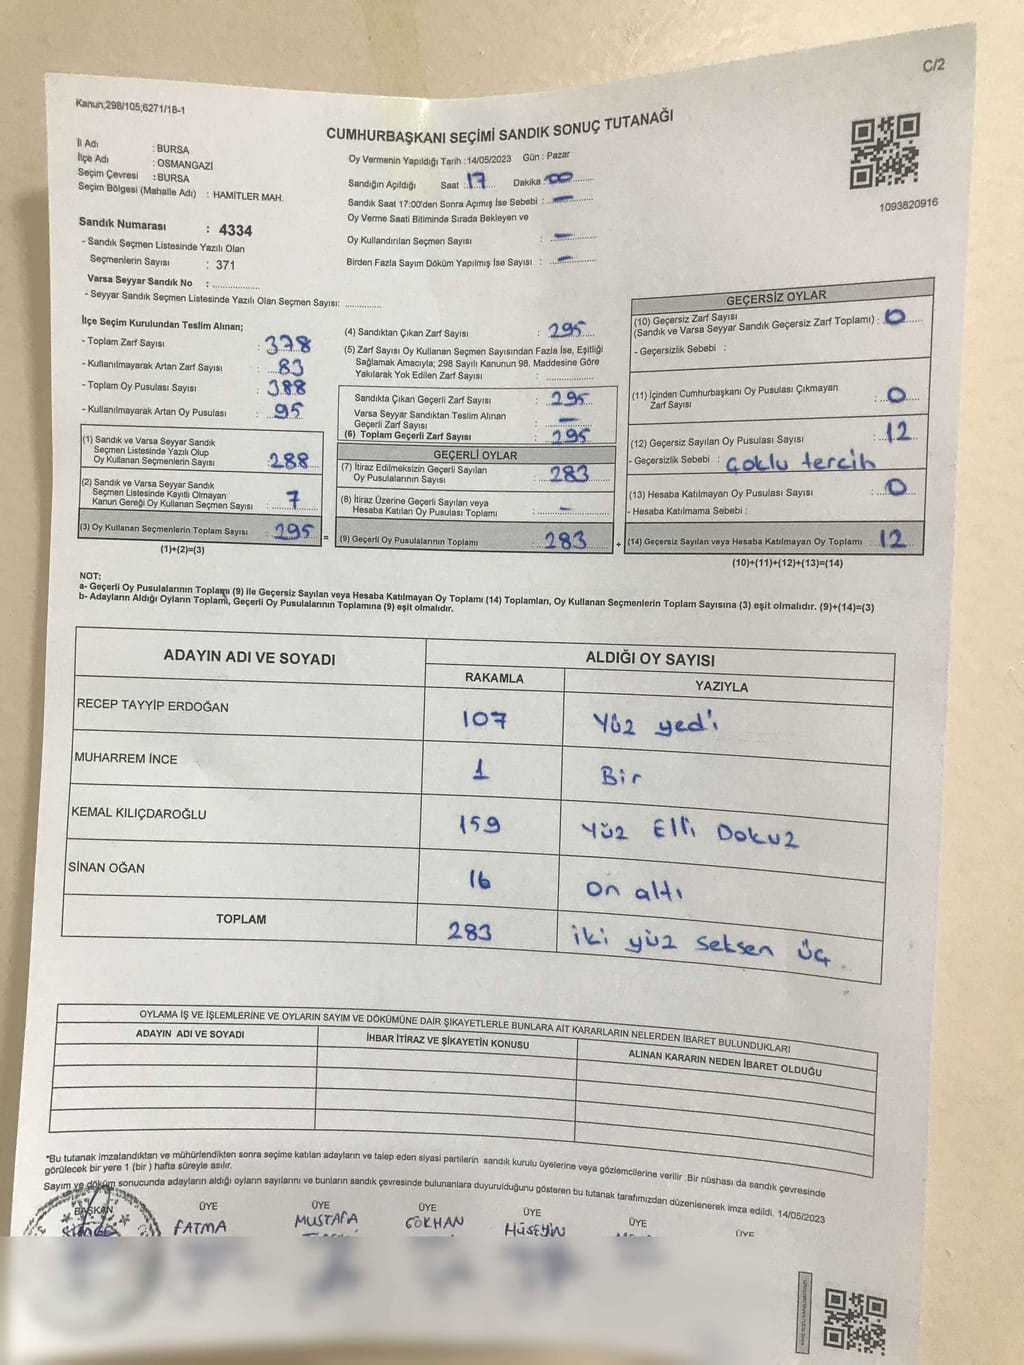 C/2
Kanun;298/105;6271/18-1
CUMHURBAŞKANI SEÇİMİ SANDIK SONUÇ TUTANAĞI
İl Adı : BURSA
İlçe Adı : OSMANGAZİ
Seçim Çevresi : BURSA
Seçim Bölgesi (Mahalle Adı) : HAMİTLER MAH.
Oy Vermenin Yapıldığı Tarih : 14/05/2023 Gün : Pazar
Sandığın Açıldığı Saat : 17 Dakika : 00
Sandık Saat 17:00'den Sonra Açımış İse Sebebi : -
Oy Verme Saati Bitiminde Sırada Bekleyen ve
Oy Kullandırılan Seçmen Sayısı : -
Birden Fazla Sayım Döküm Yapılmış İse Sayısı : -
1093820916
Sandık Numarası : 4334
- Sandık Seçmen Listesinde Yazılı Olan
Seçmenlerin Sayısı : 371
Varsa Seyyar Sandık No : ..............
- Seyyar Sandık Seçmen Listesinde Yazılı Olan Seçmen Sayısı: ............
İlçe Seçim Kurulundan Teslim Alınan;
- Toplam Zarf Sayısı : 378
- Kullanılmayarak Artan Zarf Sayısı : 83
- Toplam Oy Pusulası Sayısı : 388
- Kullanılmayarak Artan Oy Pusulası : 95
(1) Sandık ve Varsa Seyyar Sandık
Seçmen Listesinde Yazılı Olup
Oy Kullanan Seçmenlerin Sayısı : 288
(2) Sandık ve Varsa Seyyar Sandık
Seçmen Listesinde Kayıtlı Olmayan
Kanun Gereği Oy Kullanan Seçmen Sayısı : 7
(3) Oy Kullanan Seçmenlerin Toplam Sayısı : 295 =
(1)+(2)=(3)
(4) Sandıktan Çıkan Zarf Sayısı : 295
(5) Zarf Sayısı Oy Kullanan Seçmen Sayısından Fazla İse, Eşitliği
Sağlamak Amacıyla; 298 Sayılı Kanunun 98. Maddesine Göre
Yakılarak Yok Edilen Zarf Sayısı : ..............
Sandıkta Çıkan Geçerli Zarf Sayısı : 295
Varsa Seyyar Sandıktan Teslim Alınan
Geçerli Zarf Sayısı : -
(6) Toplam Geçerli Zarf Sayısı : 295
GEÇERLİ OYLAR
(7) İtiraz Edilmeksizin Geçerli Sayılan
Oy Pusulalarının Sayısı : 283
(8) İtiraz Üzerine Geçerli Sayılan veya
Hesaba Katılan Oy Pusulası Toplamı : -
(9) Geçerli Oy Pusulalarının Toplamı : 283 +
GEÇERSİZ OYLAR
(10) Geçersiz Zarf Sayısı
(Sandık ve Varsa Seyyar Sandık Geçersiz Zarf Toplamı) : 0
- Geçersizlik Sebebi :
(11) İçinden Cumhurbaşkanı Oy Pusulası Çıkmayan
Zarf Sayısı : 0
(12) Geçersiz Sayılan Oy Pusulası Sayısı : 12
- Geçersizlik Sebebi : çoklu tercih
(13) Hesaba Katılmayan Oy Pusulası Sayısı : 0
- Hesaba Katılmama Sebebi :
(14) Geçersiz Sayılan veya Hesaba Katılmayan Oy Toplamı : 12
(10)+(11)+(12)+(13)=(14)
NOT:
a- Geçerli Oy Pusulalarının Toplamı (9) ile Geçersiz Sayılan veya Hesaba Katılmayan Oy Toplamı (14) Toplamları, Oy Kullanan Seçmenlerin Toplam Sayısına (3) eşit olmalıdır. (9)+(14)=(3)
b- Adayların Aldığı Oyların Toplamı, Geçerli Oy Pusulalarının Toplamına (9) eşit olmalıdır.
ADAYIN ADI VE SOYADI ALDIĞI OY SAYISI
RAKAMLA YAZIYLA
RECEP TAYYİP ERDOĞAN 107 Yüz yedi
MUHARREM İNCE 1 Bir
KEMAL KILIÇDAROĞLU 159 Yüz Elli Dokuz
SİNAN OĞAN 16 on altı
TOPLAM 283 iki yüz seksen üç
OYLAMA İŞ VE İŞLEMLERİNE VE OYLARIN SAYIM VE DÖKÜMÜNE DAİR ŞİKAYETLERLE BUNLARA AİT KARARLARIN NELERDEN İBARET BULUNDUKLARI
ADAYIN ADI VE SOYADI İHBAR İTİRAZ VE ŞİKAYETİN KONUSU ALINAN KARARIN NEDEN İBARET OLDUĞU
*Bu tutanak imzalandıktan ve mühürlendikten sonra seçime katılan adayların ve talep eden siyasi partilerin sandık kurulu üyelerine veya gözlemcilerine verilir. Bir nüshası da sandık çevresinde
görülecek bir yere 1 (bir ) hafta süreyle asılır.
Sayım ve döküm sonucunda adayların aldığı oyların sayılarını ve bunların sandık çevresinde bulunanlara duyurulduğunu gösteren bu tutanak tarafımızdan düzenlenerek imza edildi. 14/05/2023
BAŞKAN ÜYE ÜYE ÜYE ÜYE ÜYE ÜYE
FATMA MUSTAFA GÖKHAN HÜSEYİN